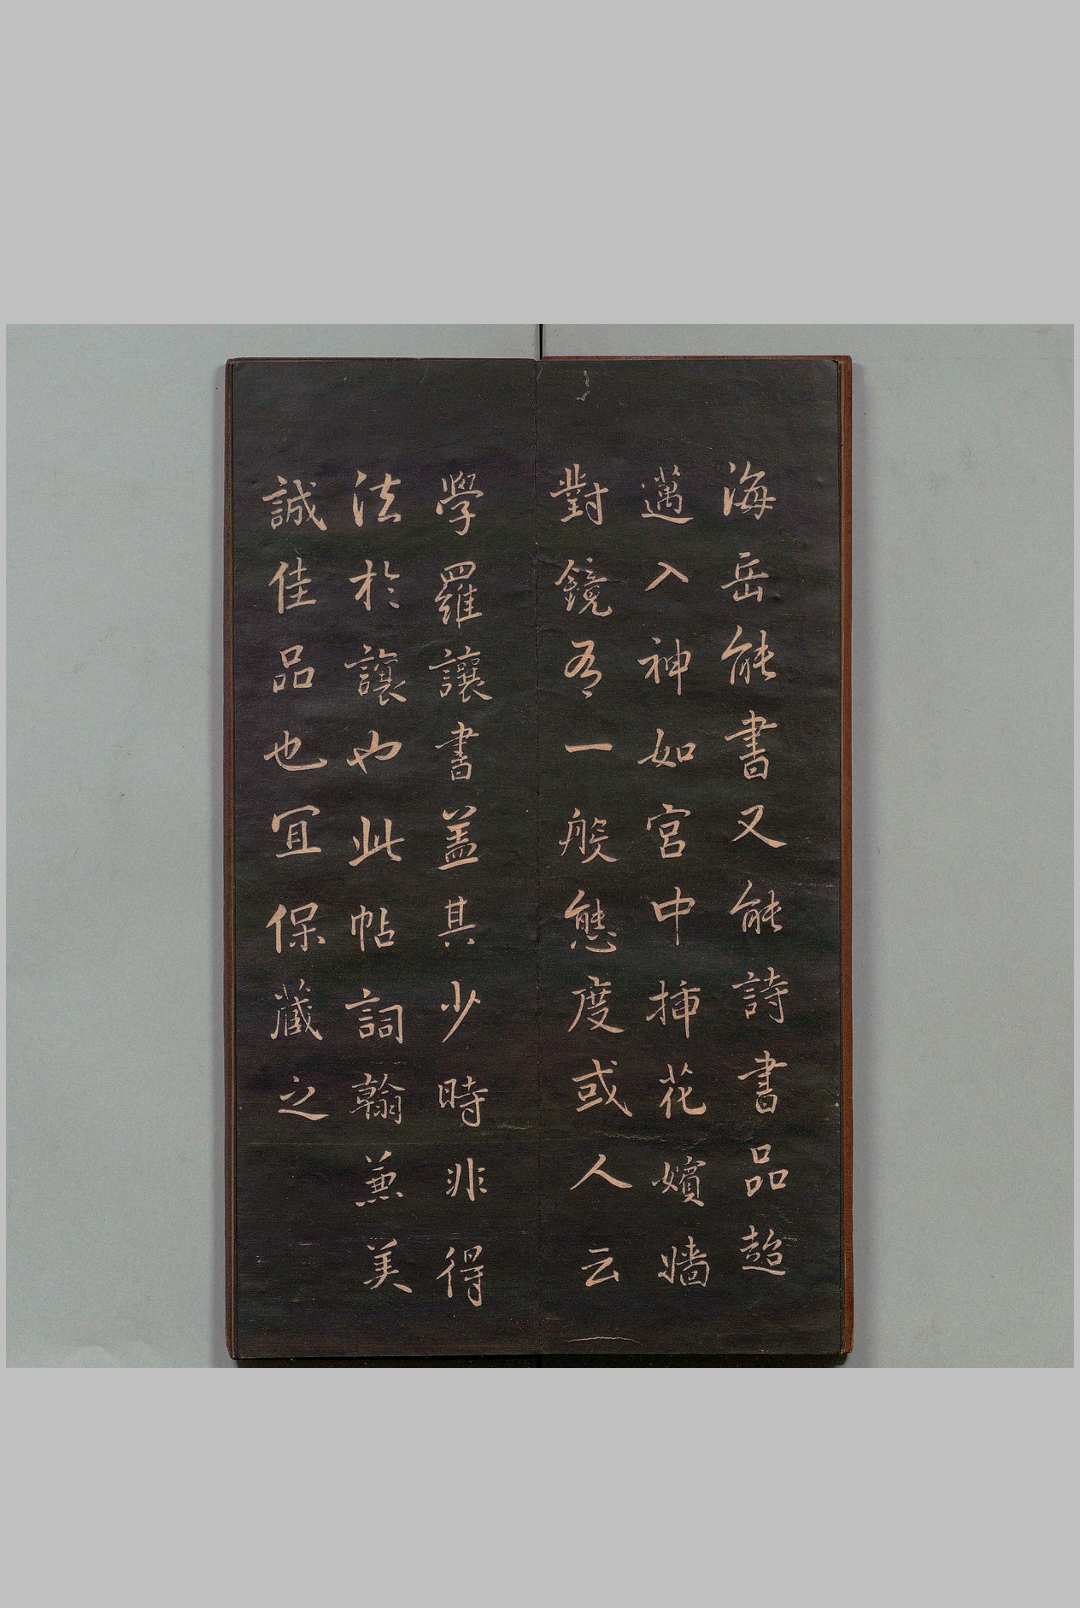 海岳能書又能詩書品超
邁入神如宮中揷花嬪嬙
對鏡有一般態度或人云
學羅讓書盖其少時非得
法於讓也此帖詞翰兼美
誠佳品也冝保藏之